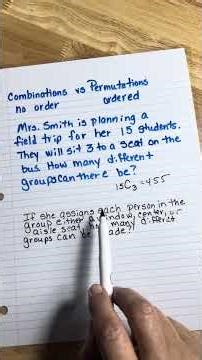 Combinations vs Permutations
no order ordered
Mrs. Smith is planning a
field trip for her 15 students.
They will sit 3 to a seat on the
bus. How many different
groups can there be?
15C3 = 455
If she assigns each person in the
group either a window, center, or
aisle seat, how many different
groups can be made?